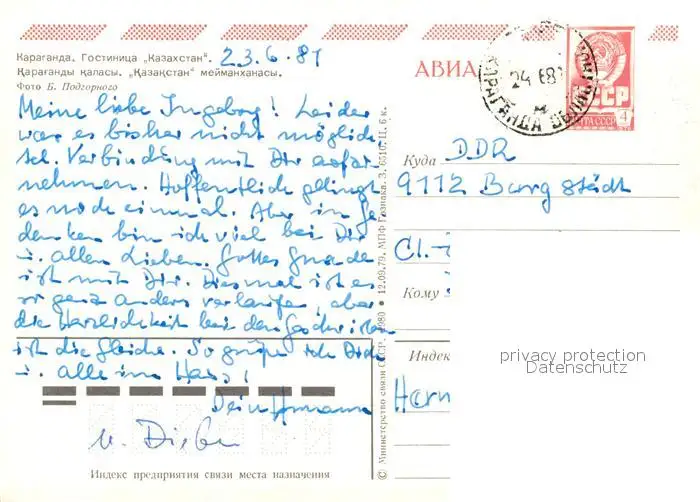 Караганда. Гостиница „Казахстан“. 23.6.81
Қарағанды қаласы. „Қазақстан“ мейманханасы.
Фото Б. Подгорного
Meine liebe Ingeborg! Leider
war es bisher nicht möglich
tel. Verbindung mit Dir aufzu-
nehmen. Hoffentlich gelingt
es noch einmal. Aber in Ge-
danken bin ich viel bei Dir
u. allen Lieben. Gottes Gnade
ist mit Dir. Diesmal ist es
so ganz anders verlaufen, aber
die Herzlichkeit bei den Geschwistern
ist die gleiche. So grüße ich Dich
u. alle im Haus!
Dein Hermann
Индекс предприятия связи места назначения
© Министерство связи СССР. 1980 • 12.09.79. МПФ Гознака. З. 6510. Ц. 6 к.
АВИА
24 6 8
КАРАГАНДА
СССР
ПОЧТА СССР
4
Куда DDR
9112 Burgstädt
Cl.-
Кому
Индекс
Herm
privacy protection
Datenschutz